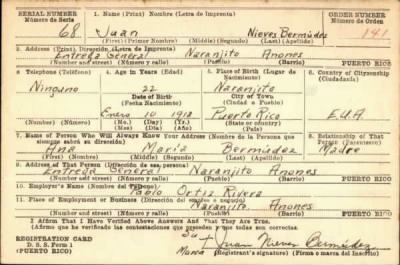 SERIAL NUMBER 1. Name (Print) Nombre (Letra de Imprenta) ORDER NUMBER
Número de Serie Número de Orden
68 Juan Nieves Bermúdez 141
(First) (Primer Nombre) (Middle) (Segundo) (Last) (Apellido)
2. Address (Print) Dirección (Letra de Imprenta)
Entrega General Naranjito Anones
(Number and street) (Número y calle) (Barrio) (Municipality) (Municipalidad) PUERTO RICO
3 Telephone (Teléfono) 4. Age in Years (Edad) 5. Place of Birth (Lugar de Nacimiento) 6. Country of Citizenship (Ciudadanía)
Ninguno 22 Naranjito
Date of Birth (Fecha Nacimiento) City of Town (Ciudad o Pueblo)
Enero 10 1918 Puerto Rico E.U.A
(Number) (Número) (Mo.) (Day) (Yr.) (Mes) (Día) (Año) (Country) (País)
7. Name of Person Who Will Always Know Your Address (Nombre de la Persona que siempre sabrá su dirección) 8. Relationship of That Person (Parentesco)
Ana María Bermúdez Madre
(First) (Nombre) (Middle) (Segundo) (Last) (Apellido)
9. Address of That Person (Dirección de esa persona)
Entrega General Naranjito Anones
(Number and street) (Número y calle) (Barrio) (Municipality) (Municipalidad) PUERTO RICO
10. Employer's Name (Nombre del Patrono)
Pablo Ortiz Rivera
11. Place of Employment or Business (Dirección del empleo o negocio)
Naranjito, Anones
(Number and street) (Número y calle) (Barrio) (Municipality) (Municipalidad) PUERTO RICO
I Affirm That I Have Verified Above Answers and That They are True.
(Afirmo que he verificado las contestaciones que preceden y que todas son ciertas).
REGISTRATION CARD Su
D. S. S. Form 1 + Juan Nieves Bermúdez
(PUERTO RICO) Marca (Registrant's signature) (Firma o marca del inscrito)